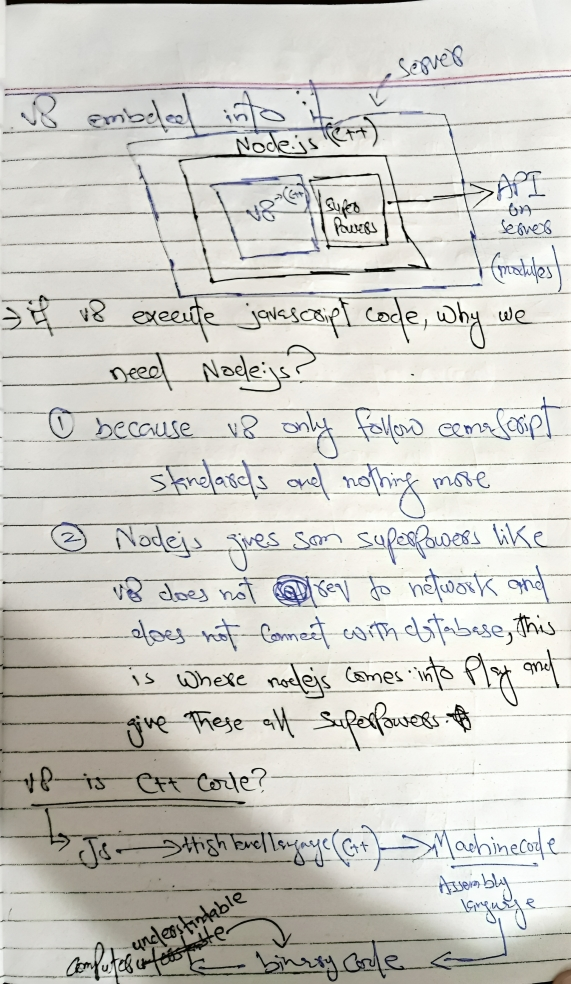 server
v8 embdeed into it
Nodejs (C++)
v8→(C++)
Super
Powers
API
on
server
(modules)
→ if v8 execute javascript code, why we
need Nodejs?
① because v8 only follow ecmaScript
standards and nothing more
② Nodejs gives som superpowers like
v8 does not to network and
does not connect with database, this
is where nodejs comes into Play and
give these all superpowers.
v8 is C++ Code?
Js → High level language (C++) → Machine code
Assembly
language
binary code
understandable
computer